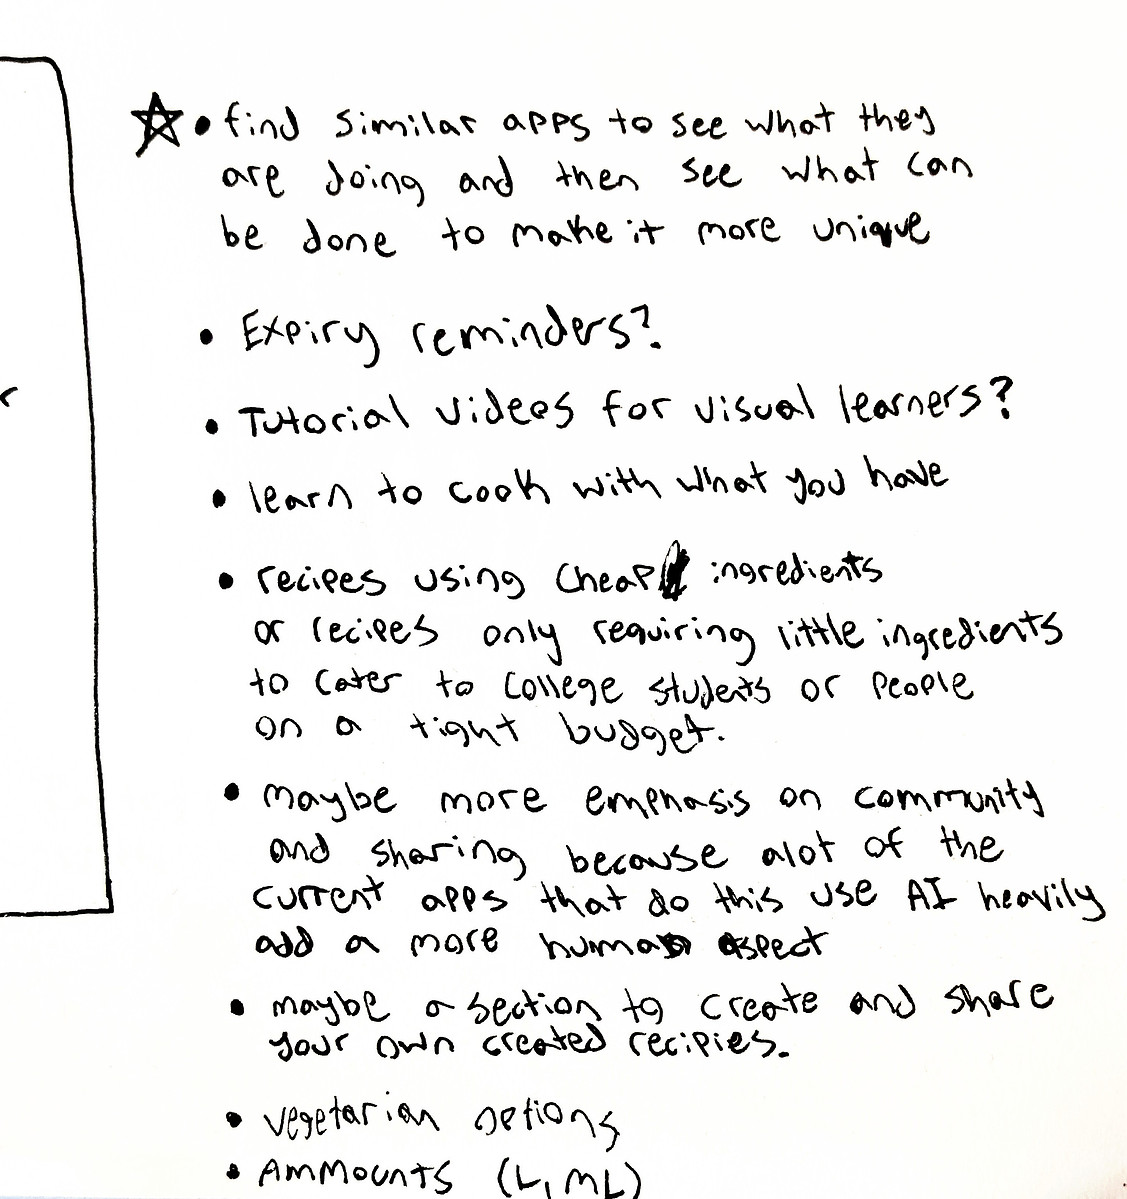 ☆ • find similar apps to see what they
are doing and then see what can
be done to make it more unique
• Expiry reminders?
• Tutorial videos for visual learners?
• learn to cook with what you have
• recipes using cheap ingredients
or recipes only requiring little ingredients
to cater to college students or people
on a tight budget.
• maybe more emphasis on community
and sharing because alot of the
current apps that do this use AI heavily
add a more human aspect
• maybe a section to create and share
your own created recipies.
• vegetarian options
• AMMOUNTS (L, ML)